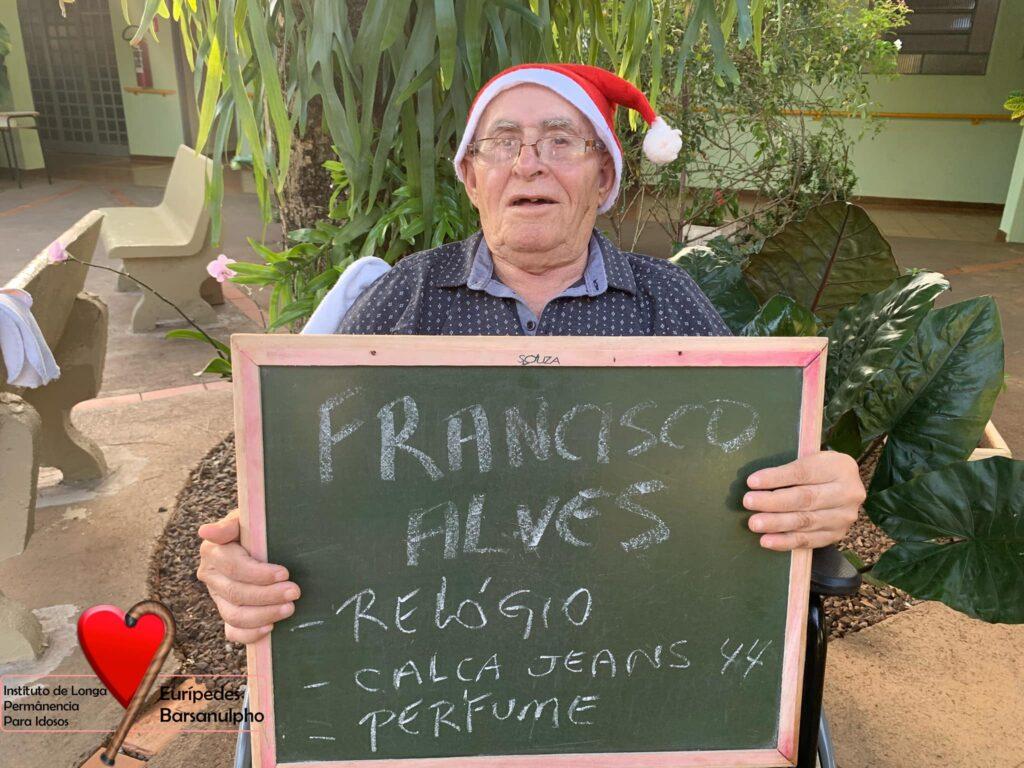 SOUZA
FRANCISCO
ALVES
- RELÓGIO
- CALCA JEANS 44
- PERFUME
Instituto de Longa
Permânencia
Para Idosos
Eurípedes
Barsanulpho